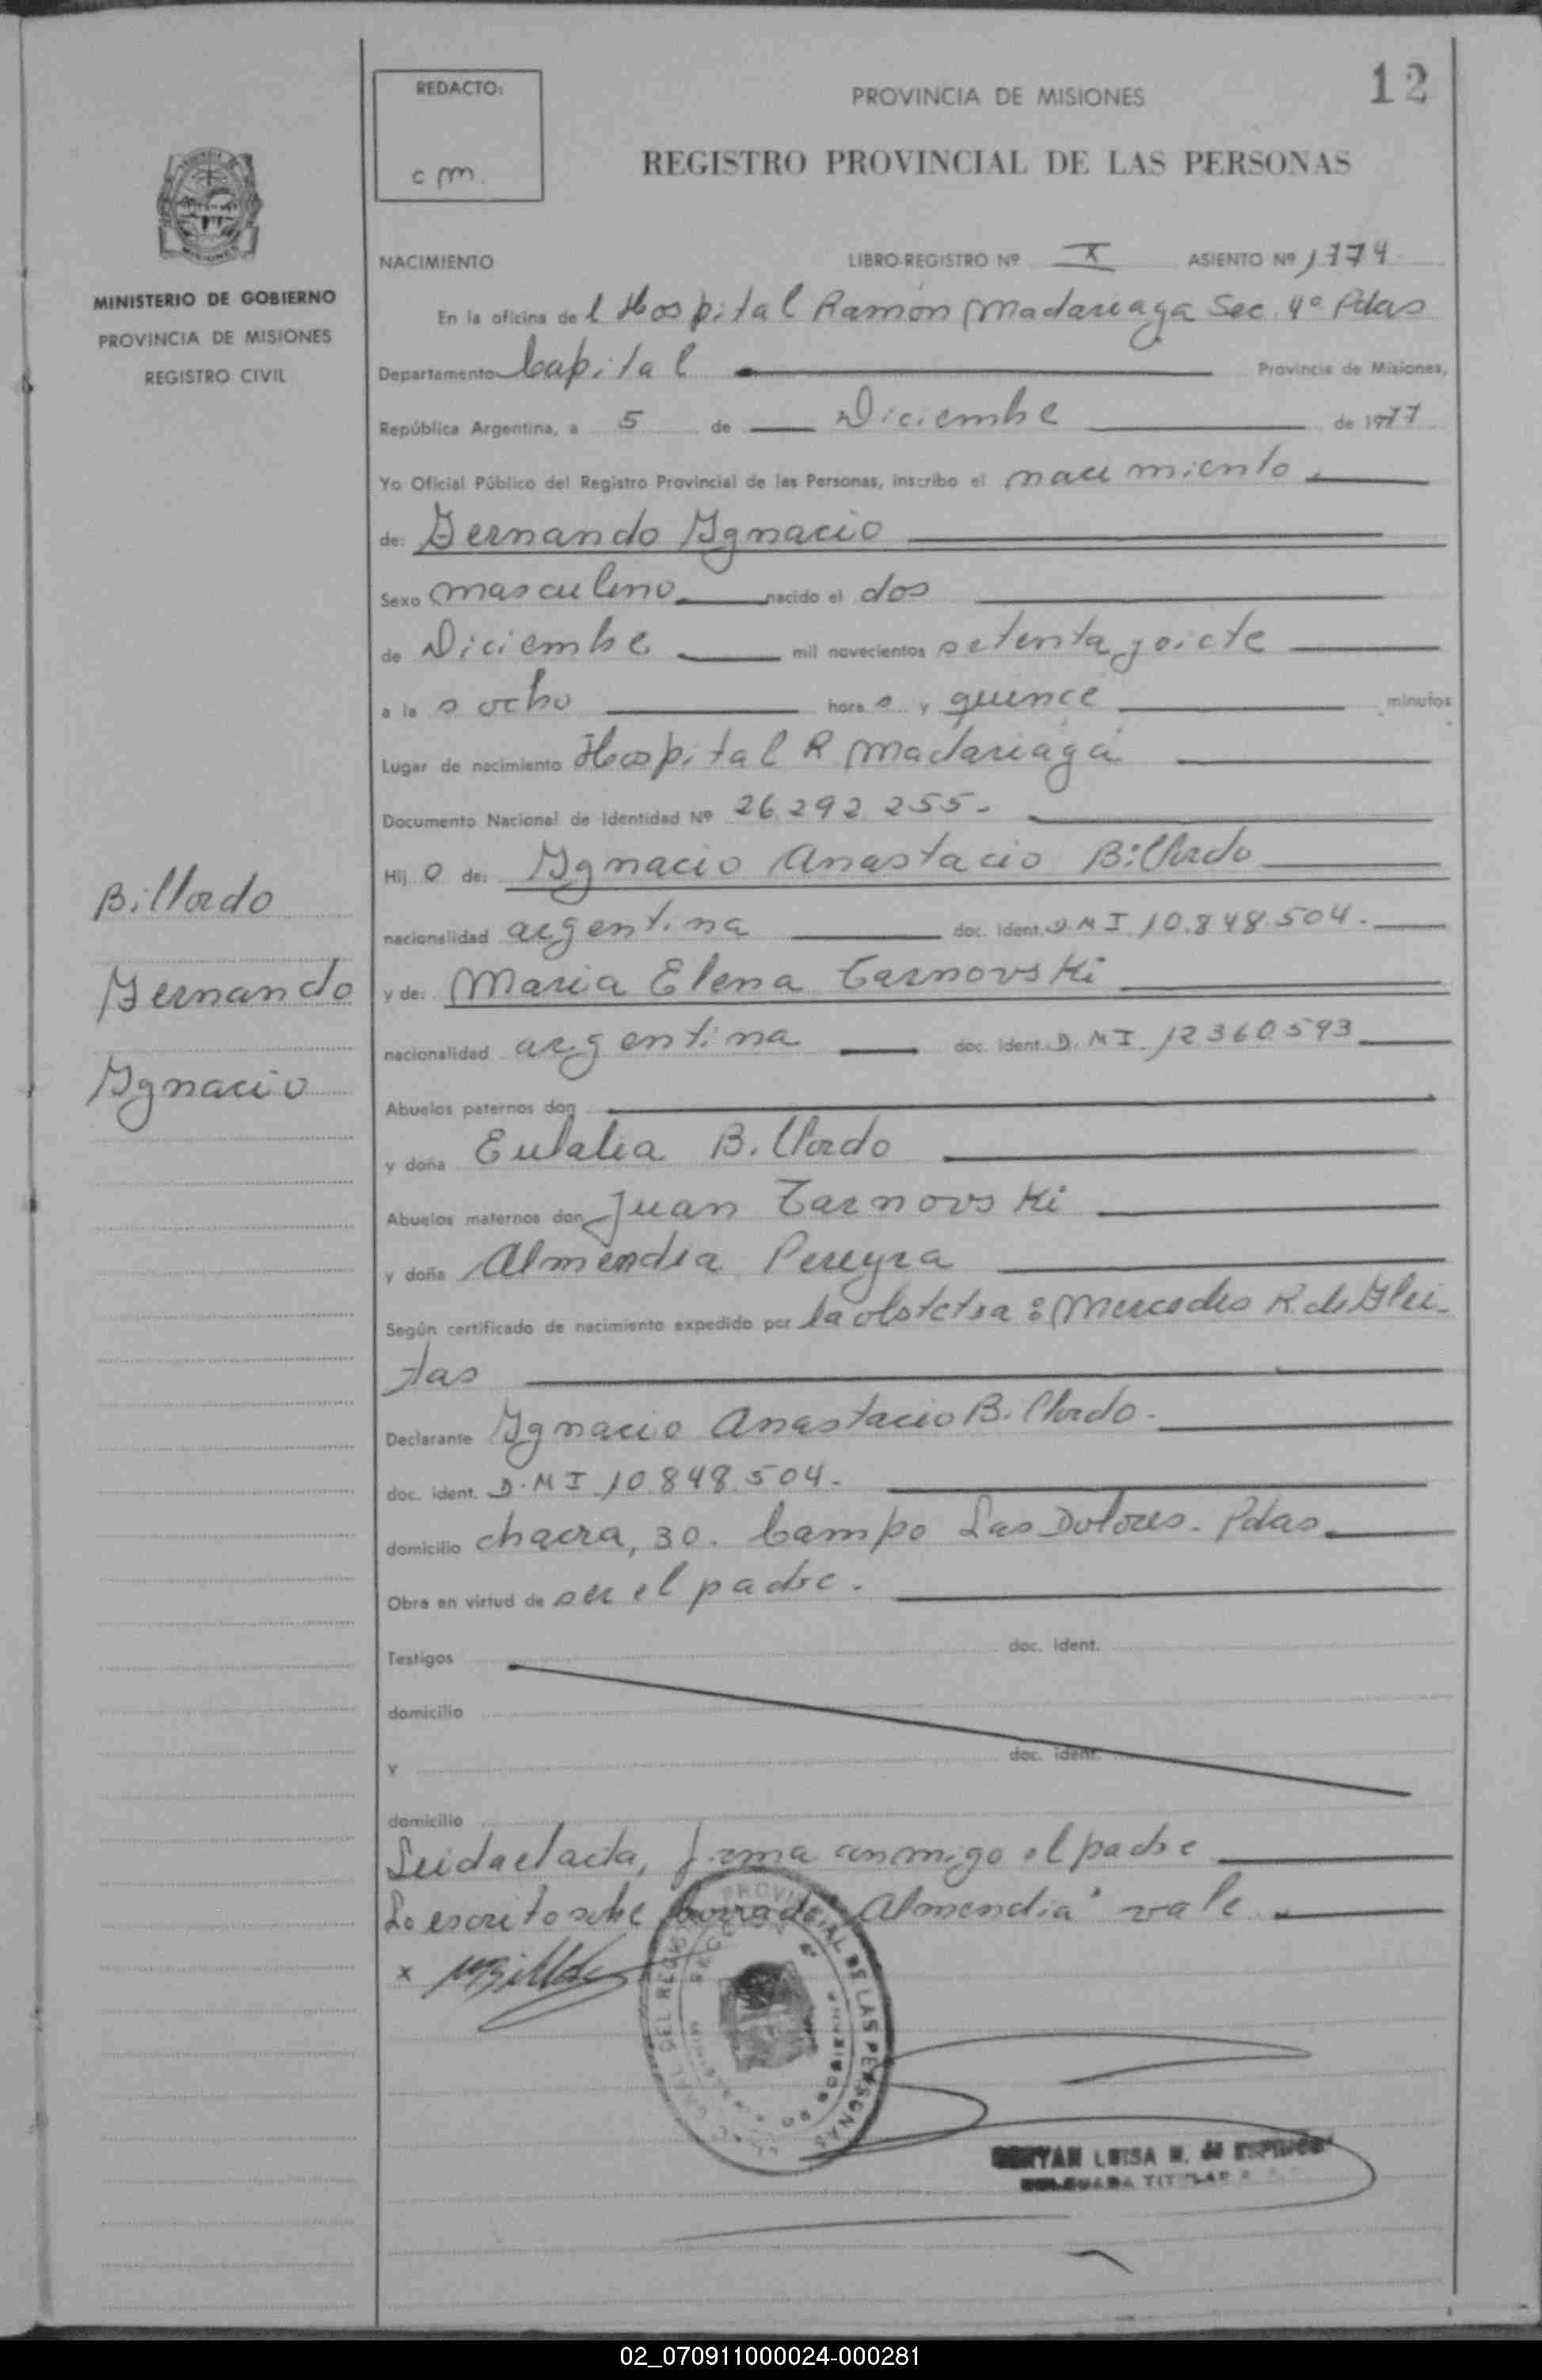 12
REDACTO:
c m
PROVINCIA DE MISIONES
REGISTRO PROVINCIAL DE LAS PERSONAS
MINISTERIO DE GOBIERNO
PROVINCIA DE MISIONES
REGISTRO CIVIL
NACIMIENTO LIBRO-REGISTRO Nº X ASIENTO Nº 1774
En la oficina del Hospital Ramón Madariaga Sec. 4ª Pdas
Departamento Capital Provincia de Misiones,
República Argentina, a 5 de Diciembre de 1977
Yo Oficial Público del Registro Provincial de las Personas, inscribo el nacimiento
de: Fernando Ygnacio
Sexo masculino nacido el dos
de Diciembre mil novecientos setenta y siete
a las ocho horas y quince minutos
Lugar de nacimiento Hospital R Madariaga
Documento Nacional de Identidad Nº 26.292.255.-
Hijo de: Ygnacio Anastacio Billordo
nacionalidad argentina doc. ident. D.N.I 10.848.504.
y de: Maria Elena Tarnovski
nacionalidad argentina doc. ident. D.N.I. 12.360.593
Abuelos paternos don
y doña Eulalia Billordo
Abuelos maternos don Juan Tarnovski
y doña Almendia Pereyra
Según certificado de nacimiento expedido por la obstetra: Mercedes R. de Flei-
tas
Declarante Ygnacio Anastacio Billordo.
doc. ident. D.N.I 10.848.504.
domicilio chacra, 30. Campo Las Dolores. Pdas
Obra en virtud de ser el padre.
Testigos doc. ident.
domicilio
y doc. ident.
domicilio
Leida el acta, firma conmigo el padre
Lo escrito sobre borrado Almendia" vale
x
Billordo
Fernando
Ygnacio
PROVINCIAL DE LAS PERSONAS
LUISA
TITULAR
02_070911000024-000281